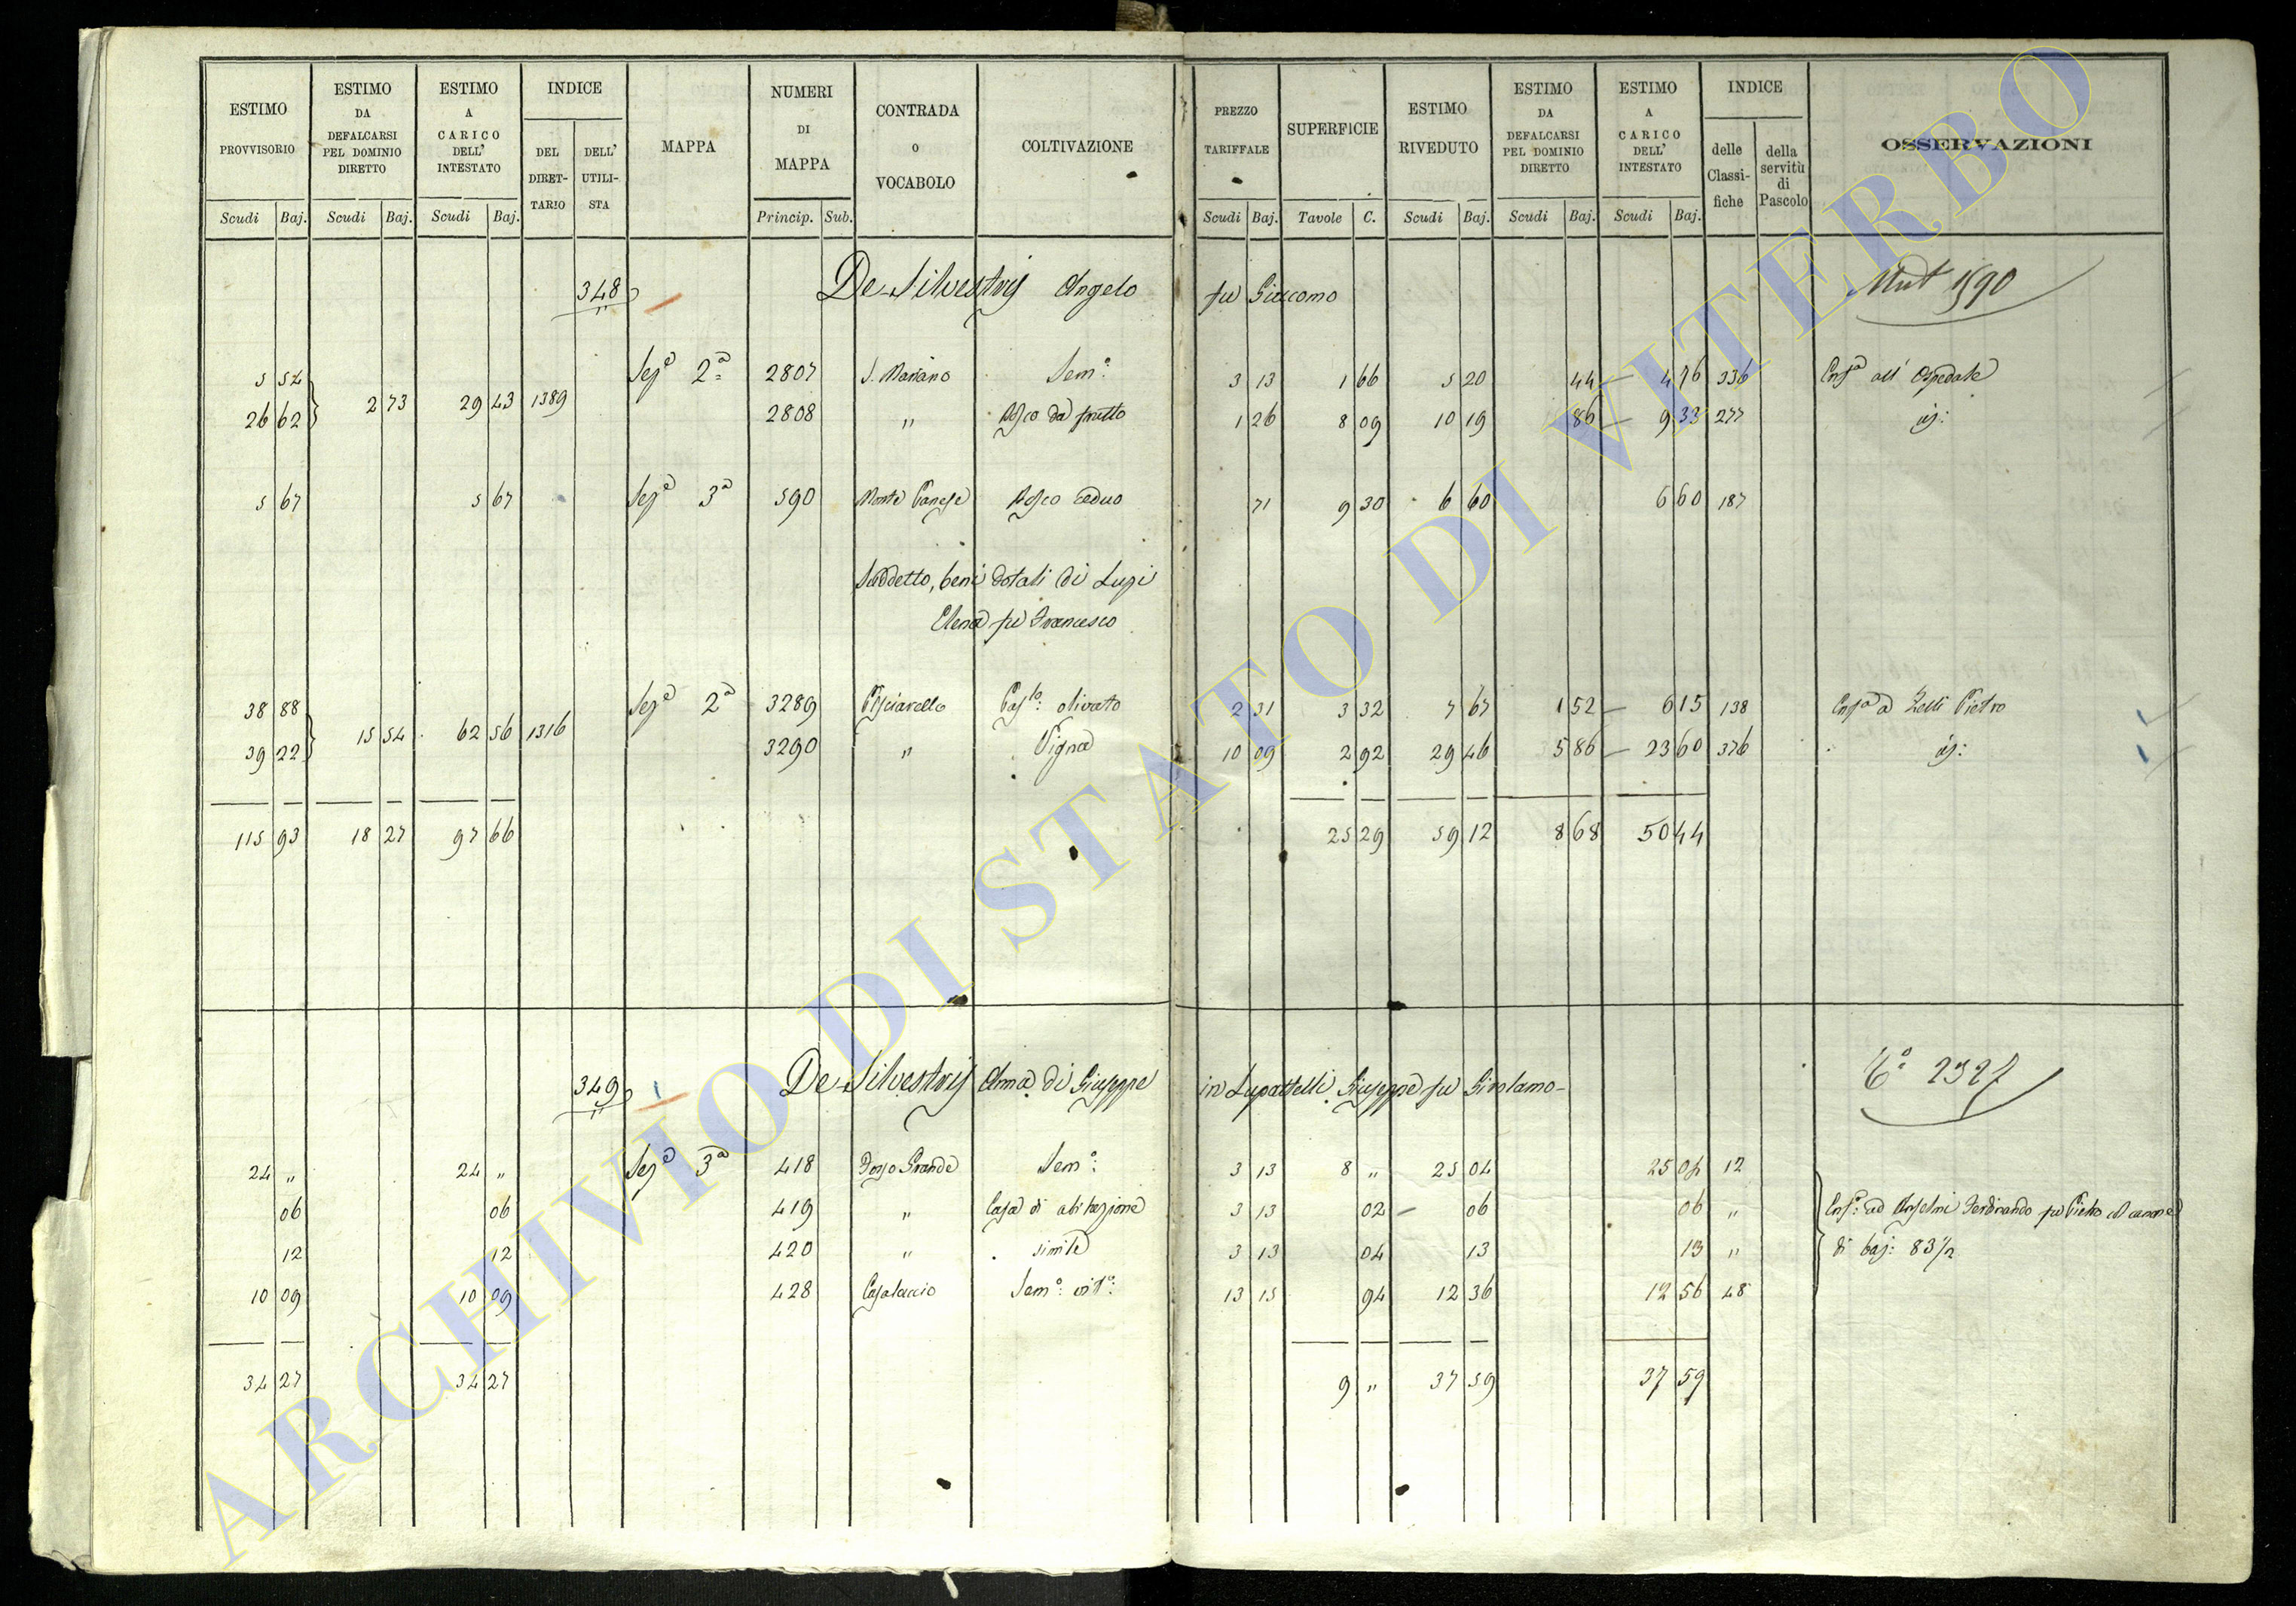 ESTIMO PROVVISORIO | ESTIMO DA DEFALCARSI PEL DOMINIO DIRETTO | ESTIMO A CARICO DELL' INTESTATO | INDICE DEL DIRETTARIO | DELL' UTILISTA | MAPPA | NUMERI DI MAPPA | CONTRADA O VOCABOLO | COLTIVAZIONE | PREZZO TARIFFALE | SUPERFICIE | ESTIMO RIVEDUTO | ESTIMO DA DEFALCARSI PEL DOMINIO DIRETTO | ESTIMO A CARICO DELL' INTESTATO | INDICE delle Classifiche | della servitù di Pascolo | OSSERVAZIONI
Scudi | Baj. | Scudi | Baj. | Scudi | Baj. | Princip. | Sub. | Scudi | Baj. | Tavole | C. | Scudi | Baj. | Scudi | Baj. | Scudi | Baj.
348 De-Silvestris Angelo fu Giacomo Mut 1590
5 54 | Sezᵉ 2ª | 2807 | S. Mariano | Semᵒ: | 3 13 | 1 66 | 5 20 | 44 | 4 76 | 336 | Enfª all' Ospedale
2 73 | 29 43 | 1389
26 62 | 2808 | " | Bosco da frutto | 1 26 | 8 09 | 10 19 | 86 | 9 33 | 277 | id:
5 67 | 5 67 | Sezᵉ 3ª | 590 | Monte | Bosco ceduo | 71 | 9 30 | 6 60 | 6 60 | 187
Suddetto, beni dotali di Lupi
Elena fu Francesco
38 88 | Sezᵉ 2ª | 3289 | Pisciarello | Pasᵗᵒ: olivato | 2 31 | 3 32 | 7 67 | 1 52 | 6 15 | 138 | Enfª a Zelli Pietro
15 54 | 62 56 | 1316
39 22 | 3290 | " | Vigna | 10 09 | 2 92 | 29 46 | 5 86 | 23 60 | 376 | id:
115 93 | 18 27 | 97 66 | 25 29 | 59 12 | 8 68 | 50 44
349 De-Silvestris Anna di Giuseppe in Lupattelli Giuseppe fu Girolamo- Nº 2327
24 " | 24 " | Sezᵉ 3ª | 418 | Poggio Grande | Semᵒ: | 3 13 | 8 " | 25 04 | 25 04 | 12
06 | 06 | 419 | " | Casa di abitazione | 3 13 | 02 | 06 | 06 | " | Enfª: ad Anselmi Ferdinando fu Pietro col canone
12 | 12 | 420 | " | simile | 3 13 | 04 | 13 | 13 | " | di baj: 83½
10 09 | 10 09 | 428 | Casaluccio | Semᵒ: vitᵒ: | 13 15 | 94 | 12 36 | 12 36 | 48
34 27 | 34 27 | 9 " | 37 59 | 37 59
ARCHIVIO DI STATO DI VITERBO